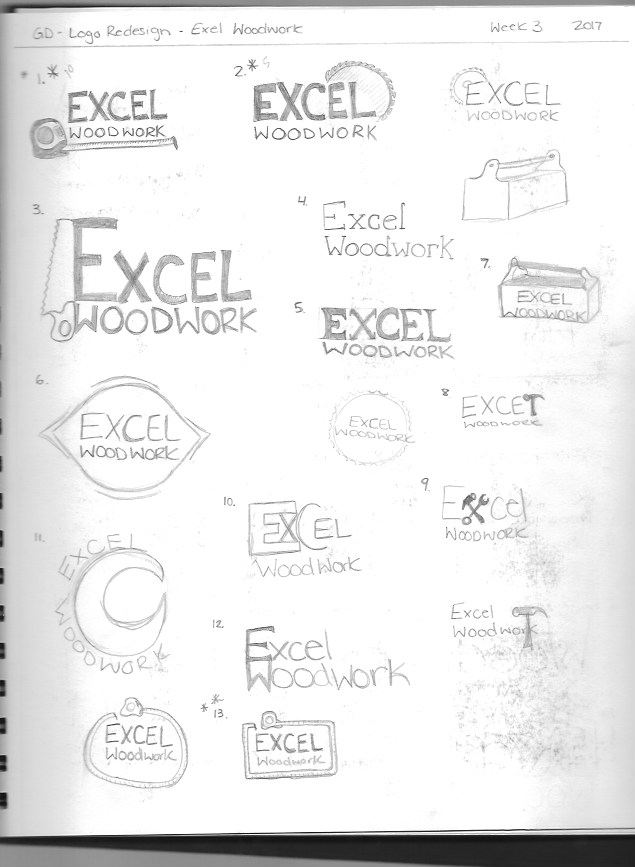 GD - Logo Redesign - Exel Woodwork Week 3 2017
* 1. *
EXCEL
WOODWORK
2. *
EXCEL
WOODWORK
EXCEL
WOODWORK
3.
EXCEL
WOODWORK
4.
Excel
Woodwork
7.
EXCEL
WOODWORK
5.
EXCEL
WOODWORK
6.
EXCEL
WOODWORK
EXCEL
WOODWORK
8
EXCET
WOODWORK
10.
EXCEL
WoodWork
9.
Excel
WOODWORK
11.
EXCEL
WOODWORK
12.
Excel
Woodwork
Excel
Woodwork
EXCEL
Woodwork
** 13.
EXCEL
Woodwork